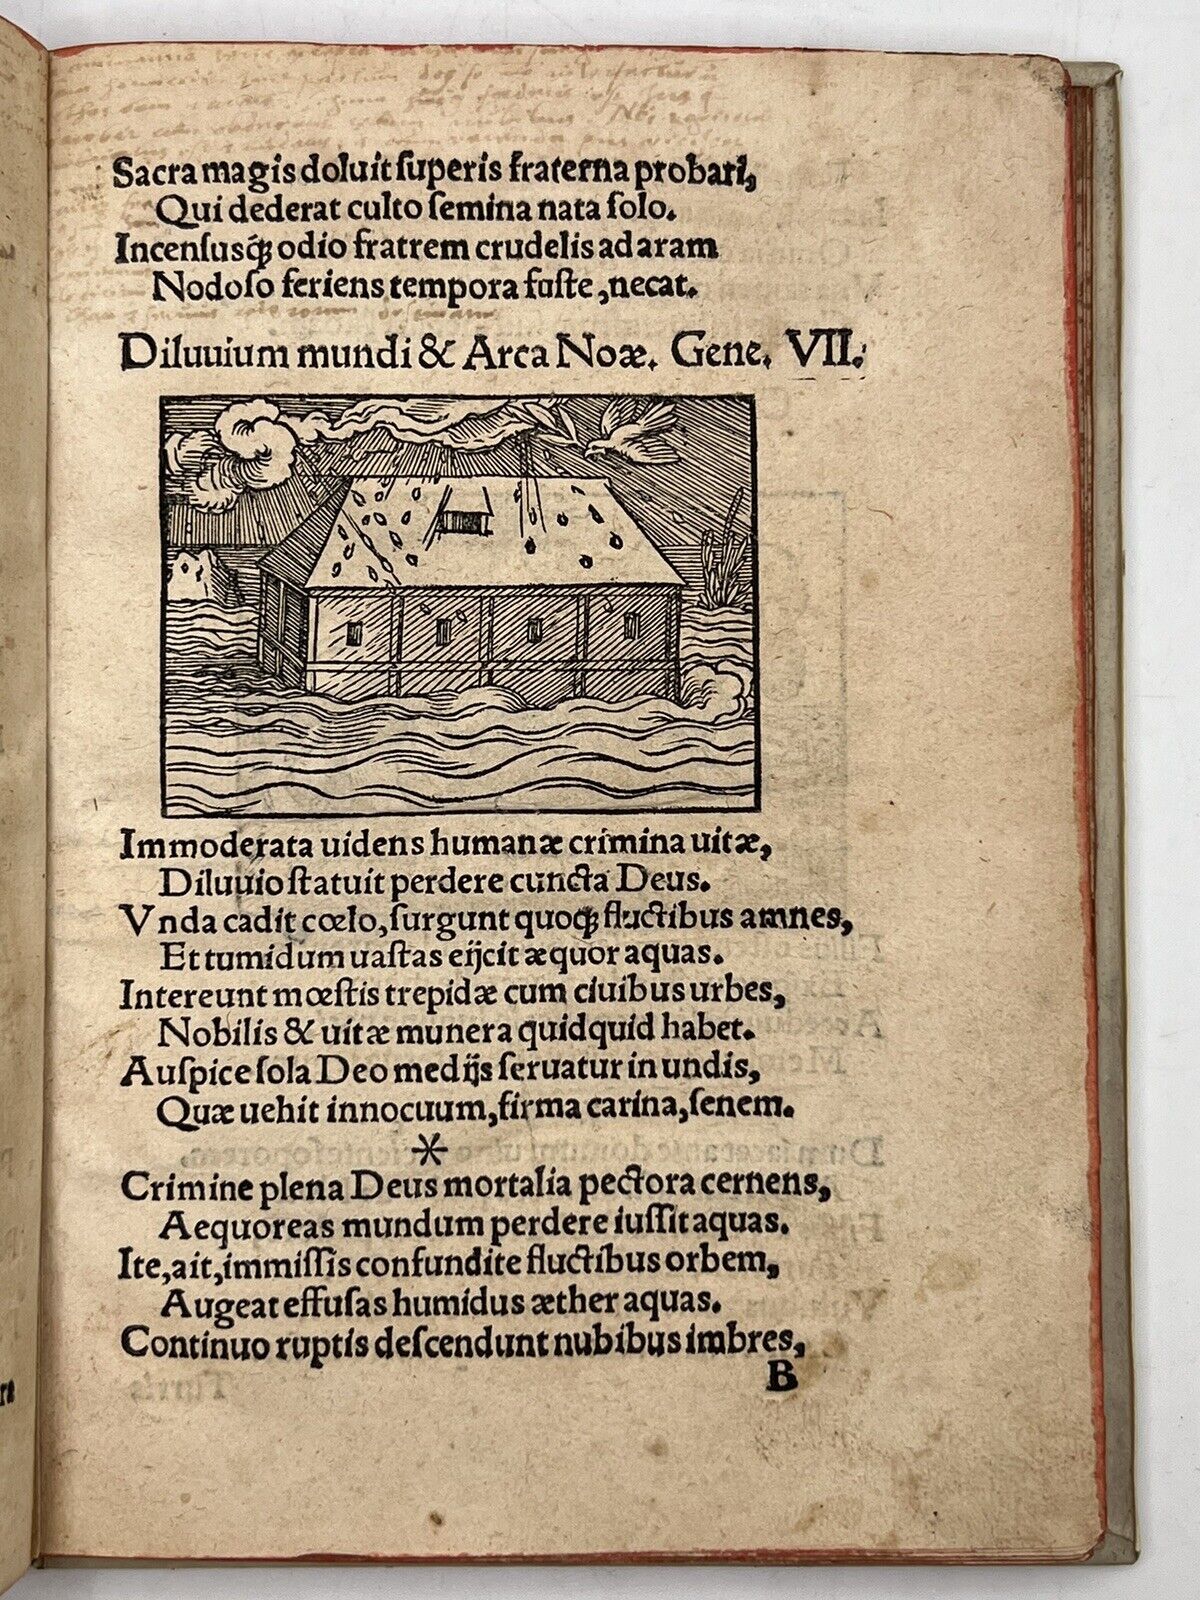 Sacra magis doluit ſuperis fraterna probari,
Qui dederat culto ſemina nata ſolo.
Incenſusq; odio fratrem crudelis ad aram
Nodoſo feriens tempora fuſte, necat.
Diluuium mundi & Arca Noæ. Gene. VII.
Immoderata uidens humanæ crimina uitæ,
Diluuio ſtatuit perdere cuncta Deus.
Vnda cadit cœlo, ſurgunt quoq; fluctibus amnes,
Et tumidum uaſtas eijcit æquor aquas.
Intereunt mœſtis trepidæ cum ciuibus urbes,
Nobilis & uitæ munera quidquid habet.
Auſpice ſola Deo medijs ſeruatur in undis,
Quæ uehit innocuum, firma carina, ſenem.
*
Crimine plena Deus mortalia pectora cernens,
Aequoreas mundum perdere iuſſit aquas.
Ite, ait, immiſſis confundite fluctibus orbem,
Augeat effuſas humidus æther aquas.
Continuo ruptis deſcendunt nubibus imbres,
B